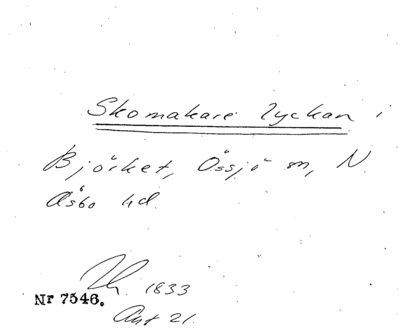 Skomakare lyckan i
Björket, Össjö sn, N.
Åsbo hd.
Lh. 1833
Nr 7546.
Akt 21.